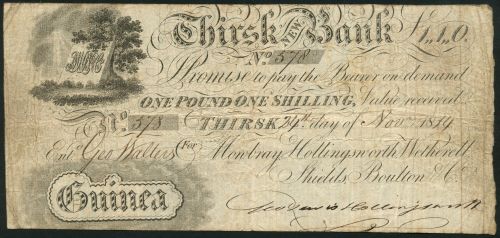 Thirsk NEW Bank £1,,1,,0.
No 578
Promise to pay the Bearer on demand
ONE POUND ONE SHILLING, Value received
No 578 THIRSK 24th day of Novr 1814
Entd Geo Walters (For Mowbray Hollingsworth Wetherell
Shields, Boulton & Co
Guinea
Hollingsworth